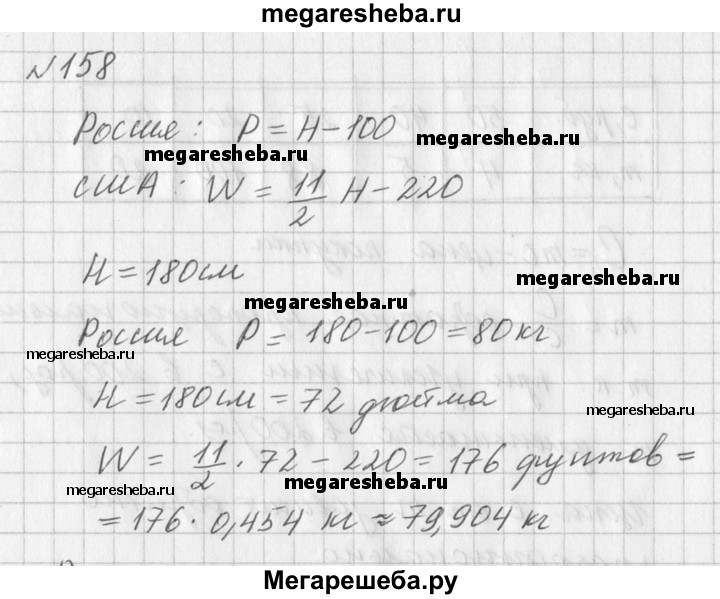 megaresheba.ru
№158
Россия: P = H - 100
megaresheba.ru
megaresheba.ru
США: W = 11/2 H - 220
H = 180 см
megaresheba.ru
megaresheba.ru
Россия P = 180 - 100 = 80 кг
megaresheba.ru
H = 180 см = 72 дюйма
megaresheba.ru
W = 11/2 · 72 - 220 = 176 фунтов =
megaresheba.ru
megaresheba.ru
= 176 · 0,454 кг ≈ 79,904 кг
Мегарешеба.ру